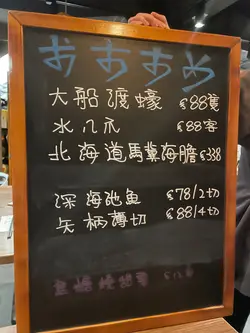 おすすめ
大船渡蠔 $88隻
水八爪 $88客
北海道馬糞海膽 $338
深海池魚 $78/2切
矢柄薄切 $88/4切